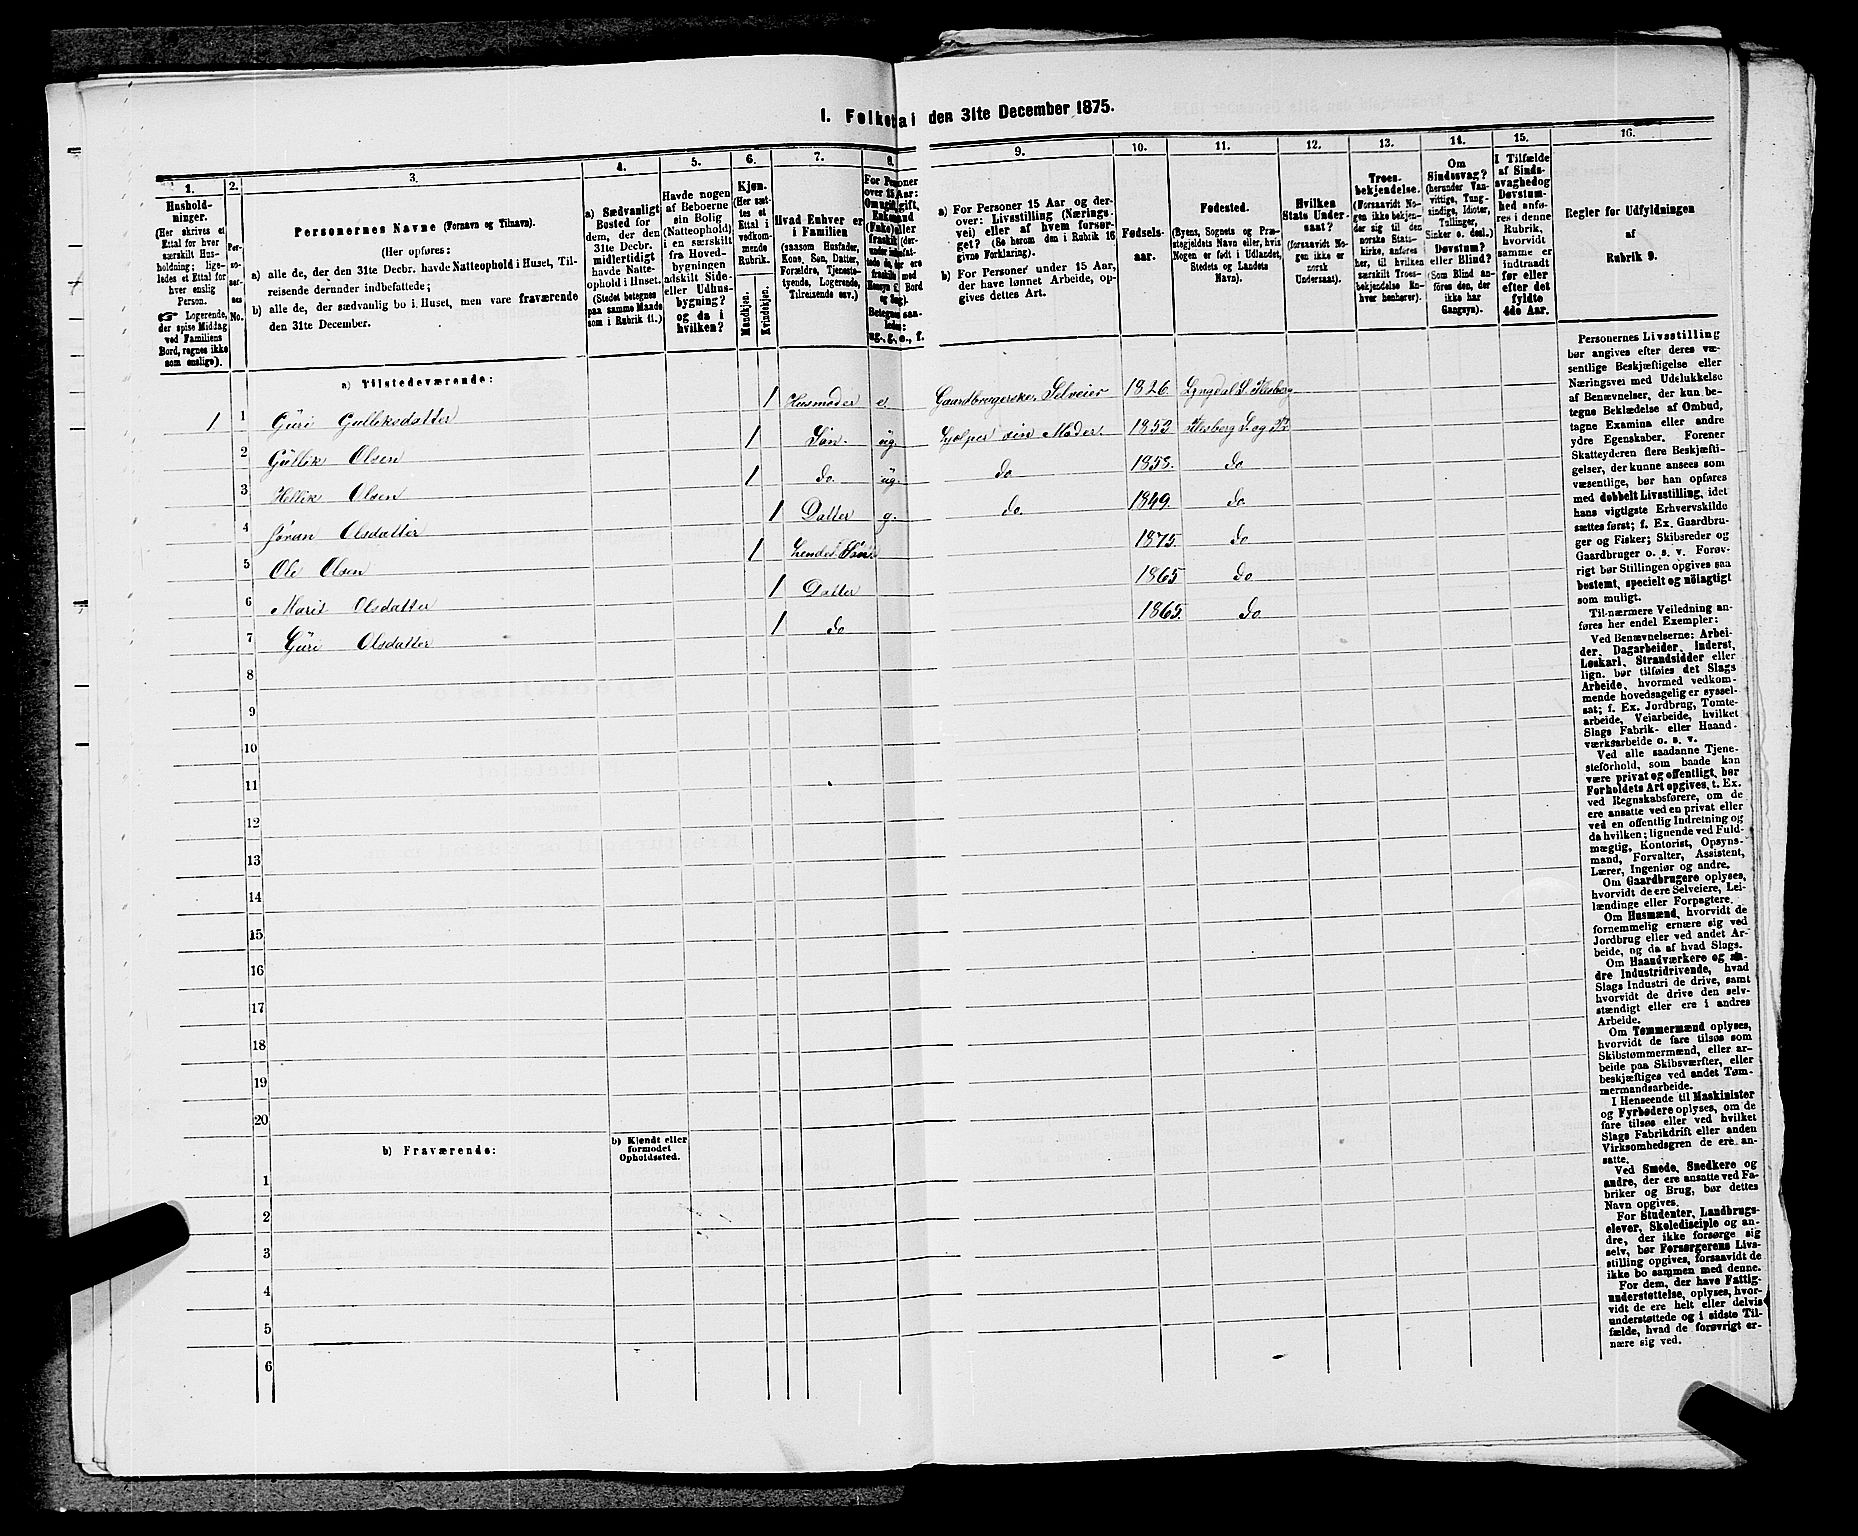 1. Folketal den 31te December 1875.
1. 2. 3. 4. 5. 6. 7. 8. 9. 10. 11. 12. 13. 14. 15. 16.
Hushold-
ninger.
(Her skrives et
Ettal for hver
særskilt Hus-
holdning; lige-
ledes et Ettal for
hver enslig
Person.
☞ Logerende,
der spise Middag
ved Familiens
Bord, regnes ikke
som enslige).
Per-
so-
ner-
nes
No.
Personernes Navne (Fornavn og Tilnavn).
(Her opføres:
a) alle de, der den 31te Decbr. havde Natteophold i Huset, Til-
reisende derunder indbefattede;
b) alle de, der sædvanlig bo i Huset, men vare fraværende
den 31te December.
a) Sædvanligt
Bosted for
dem, der den
31te Decbr.
midlertidigt
havde Natte-
ophold i Huset.
(Stedet betegnes
paa samme Maade
som i Rubrik 11.)
Havde nogen
af Beboerne
sin Bolig
(Natteophold)
i en særskilt
fra Hoved-
bygningen
adskilt Side-
eller Udhus-
bygning?
og da i
hvilken?
Kjøn.
(Her sæt-
tes et
Ettal i
vedkom-
mende
Rubrik.
Mandkjøn.
Kvindekjøn.
Hvad Enhver er
i Familien
(saasom Husfader,
Kone, Søn, Datter,
Forældre, Tjeneste-
tyende, Logerende,
Tilreisende osv.)
For Personer
over 15 Aar:
Betegnes saa-
ledes:
ug., g., e., f.
a) For Personer 15 Aar og der-
over: Livsstilling (Nærings-
vei) eller af hvem forsør-
get? (Se herom den i Rubrik 16
givne Forklaring).
b) For Personer under 15 Aar,
der have lønnet Arbeide, op-
gives dettes Art.
Fødsels-
aar.
Fødested.
(Byens, Sognets og Præ-
stegjeldets Navn eller, hvis
Nogen er født i Udlandet,
Stedets og Landets
Navn).
Hvilken
Stats Under-
saat?
(forsaavidt No-
gen ikke er
norsk
Undersaat).
Troes-
bekjendelse.
(Forsaavidt No-
gen ikke bekjen-
der sig til den
norske Stats-
kirke, anføres
her, til hvilken
særskilt Troes-
bekjendelse En-
hver henhører).
Om
Sindssvag?
(herunder Van-
vittige, Tung-
sindige, Idioter,
Tullinger,
Sinker o. desl.)
Døvstum?
eller Blind?
(Som Blind an-
føres den, der
ikke har
Gangsyn).
I Tilfælde
af Sinds-
svaghed og
Døvstum-
hed anfø-
res i denne
Rubrik,
hvorvidt
samme er
indtraadt
før eller
efter det
fyldte
4de Aar.
Regler for Udfyldningen
af
Rubrik 9.
a) Tilstedeværende:
1 1 Guri Gulliksdatter 1 Husmoder e. Gaardbrugerske, Selveier 1826. Lyngdal S. Flesberg
2 Gullik Olsen 1 Søn ug. Hjelper sin Moder. 1853 Flesberg S. og Pr.
3 Hellik Olsen 1 do. ug. do 1858. do
4 Jøran Olsdatter 1 Datter g. do. 1849. do.
5 Ole Olsen 1 Hendes Søn 1875. do
6 Marit Olsdatter 1 Datter 1865 do.
7 Guri Olsdatter 1 do 1865. do.
8
9
10
11
12
13
14
15
16
17
18
19
20
b) Fraværende:
b) Kjendt eller
formodet
Opholdssted.
1
2
3
4
5
6
Personernes Livsstilling
bør angives efter deres væ-
sentlige Beskjæftigelse eller
Næringsvei med Udelukkelse
af Benævnelser, der kun be-
tegne Beklædelse af Ombud,
tagne Examina eller andre
ydre Egenskaber. Forener
Skatteyderen flere Beskjæfti-
gelser, der kunne ansees som
væsentlige, bør han opføres
med dobbelt Livsstilling, idet
hans vigtigste Erhvervskilde
sættes først; f. Ex. Gaardbru-
ger og Fisker; Skibsreder og
Gaardbruger o. s. v. Forøv-
rigt bør Stillingen opgives saa
bestemt, specielt og nøiagtigt
som muligt.
Til nærmere Veiledning an-
føres her endel Exempler:
Ved Benævnelserne: Arbei-
der, Dagarbeider, Inderst,
Løskarl, Strandsidder eller
lign. bør tilføies det Slags
Arbeide, hvormed vedkom-
mende hovedsagelig er syssel-
sat; f. Ex. Jordbrug, Tomte-
arbeide, Veiarbeide, hvilket
Slags Fabrik- eller Haand-
værksarbeide o. s. v.
Ved alle saadanne Tjene-
steforhold, som baade kan
være privat og offentligt, bør
Forholdets Art opgives, t. Ex.
ved Regnskabsførere, om de
ere ansatte ved en privat eller
ved en offentlig Indretning og
da hvilken; lignende ved Fuld-
mægtig, Kontorist, Opsyns-
mand, Forvalter, Assistent,
Lærer, Ingeniør og andre.
Om Gaardbrugere oplyses,
hvorvidt de ere Selveiere, Lei-
lændinge eller Forpagtere.
Om Husmænd, hvorvidt de
fornemmelig ernære sig ved
Jordbrug eller ved andet Ar-
beide, og da af hvad Slags.
Om Haandværkere og an-
dre Industridrivende, hvad
Slags Industri de drive, samt
hvorvidt de drive den selv-
stændigt eller ere i andres
Arbeide.
Om Tømmermænd oplyses,
hvorvidt de fare tilsøs som
Skibstømmermænd, eller ar-
beide paa Skibsværfter, eller
beskjæftiges ved andet Tøm-
mermandsarbeide.
I Henseende til Maskinister
og Fyrbødere oplyses, om de
fare tilsøs eller ved hvilket
Slags Fabrikdrift eller anden
Virksomhedsgren de ere an-
satte.
Ved Smede, Snedkere og
andre, der ere ansatte ved Fa-
briker og Brug, bør dettes
Navn opgives.
For Studenter, Landbrugs-
elever, Skoledisciple og an-
dre, der ikke forsørge sig
selv, bør Forsørgerens Livs-
stilling opgives, forsaavidt de
ikke bo sammen med denne.
For dem, der have Fattig-
understøttelse, oplyses, hvor-
vidt de ere helt eller delvis
understøttede og i sidste Til-
fælde, hvad de forøvrigt er-
nære sig ved.